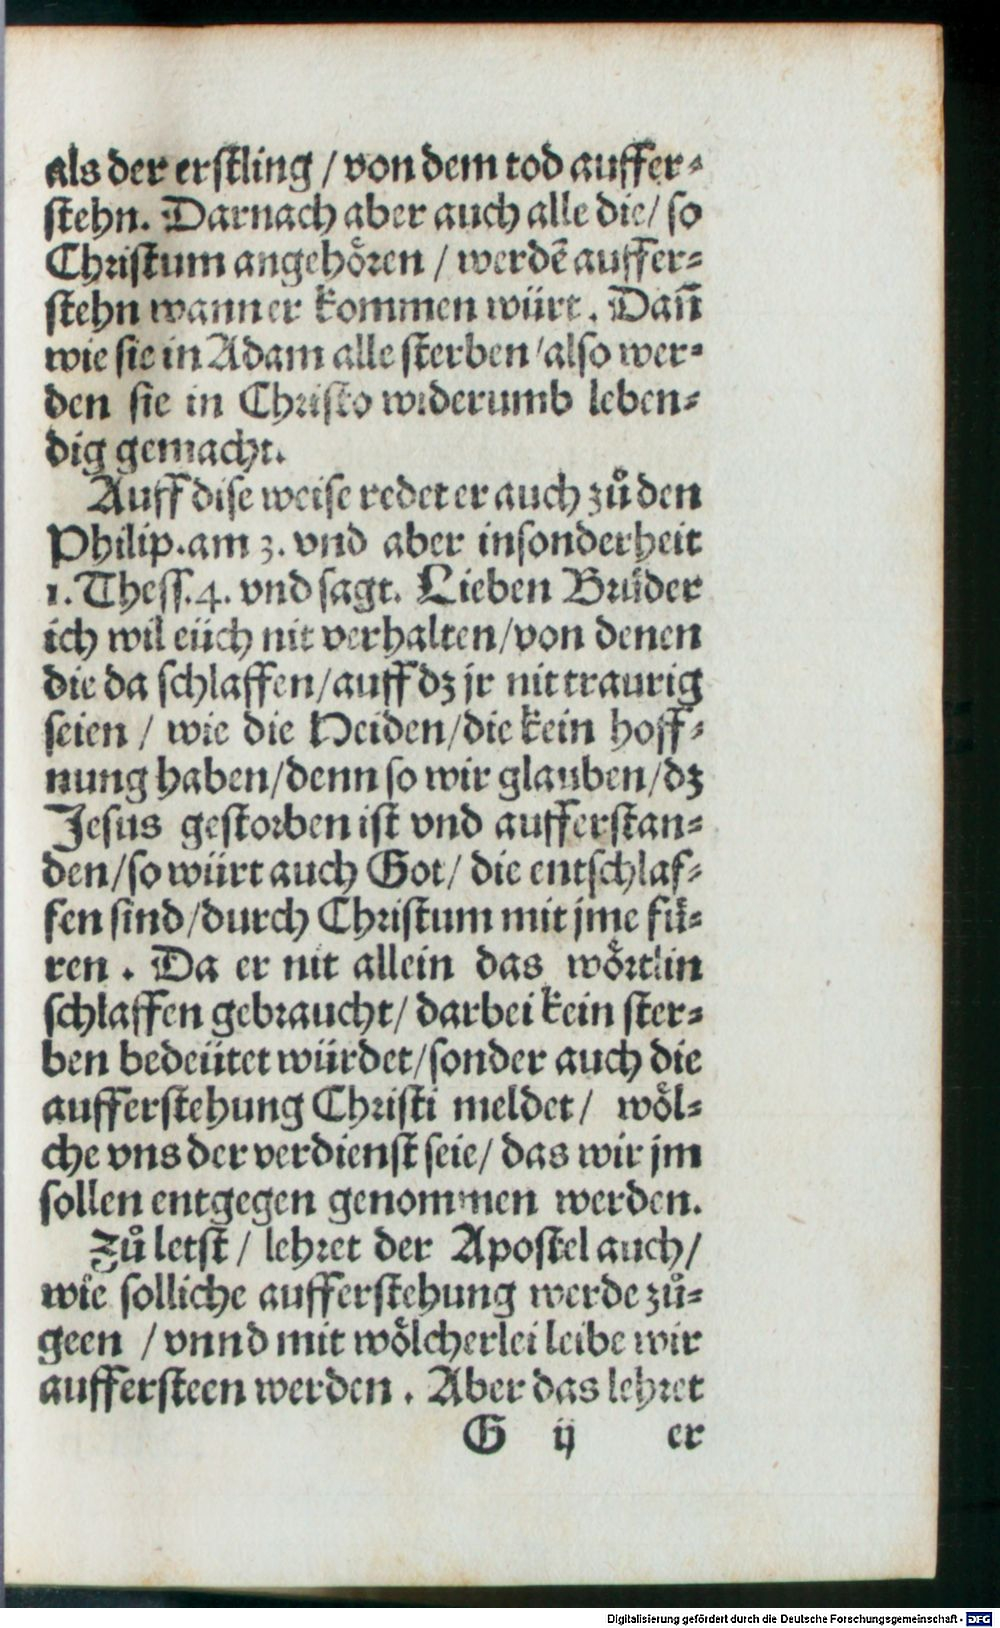 als der erstling / von dem tod auffer⸗
stehn. Darnach aber auch alle die / so
Christum angehoͤren / werdē auffer⸗
stehn wann er kommen würt. Dañ
wie sie in Adam alle sterben / also wer⸗
den sie in Christo widerumb leben⸗
dig gemacht.
Auff dise weise redet er auch zuͦ den
Philip. am 3. vnd aber insonderheit
1. Thess. 4. vnd sagt. Lieben Bruͤder
ich wil eüch nit verhalten / von denen
die da schlaffen / auff dz jr nit traurig
seien / wie die Heiden / die kein hoff⸗
nung haben / denn so wir glauben / dz
Jesus gestorben ist vnd aufferstan⸗
den / so würt auch Got / die entschlaf⸗
fen sind / durch Christum mit jme fuͤ⸗
ren. Da er nit allein das woͤrtlin
schlaffen gebraucht / darbei kein ster⸗
ben bedeütet würdet / sonder auch die
aufferstehung Christi meldet / woͤl⸗
che vns der verdienst seie / das wir jm
sollen entgegen genommen werden.
Zuͦ letst / lehret der Apostel auch /
wie solliche aufferstehung werde zuͦ⸗
geen / vnnd mit woͤlcherlei leibe wir
auffersteen werden. Aber das lehret
G ij er
Digitalisierung gefördert durch die Deutsche Forschungsgemeinschaft - DFG